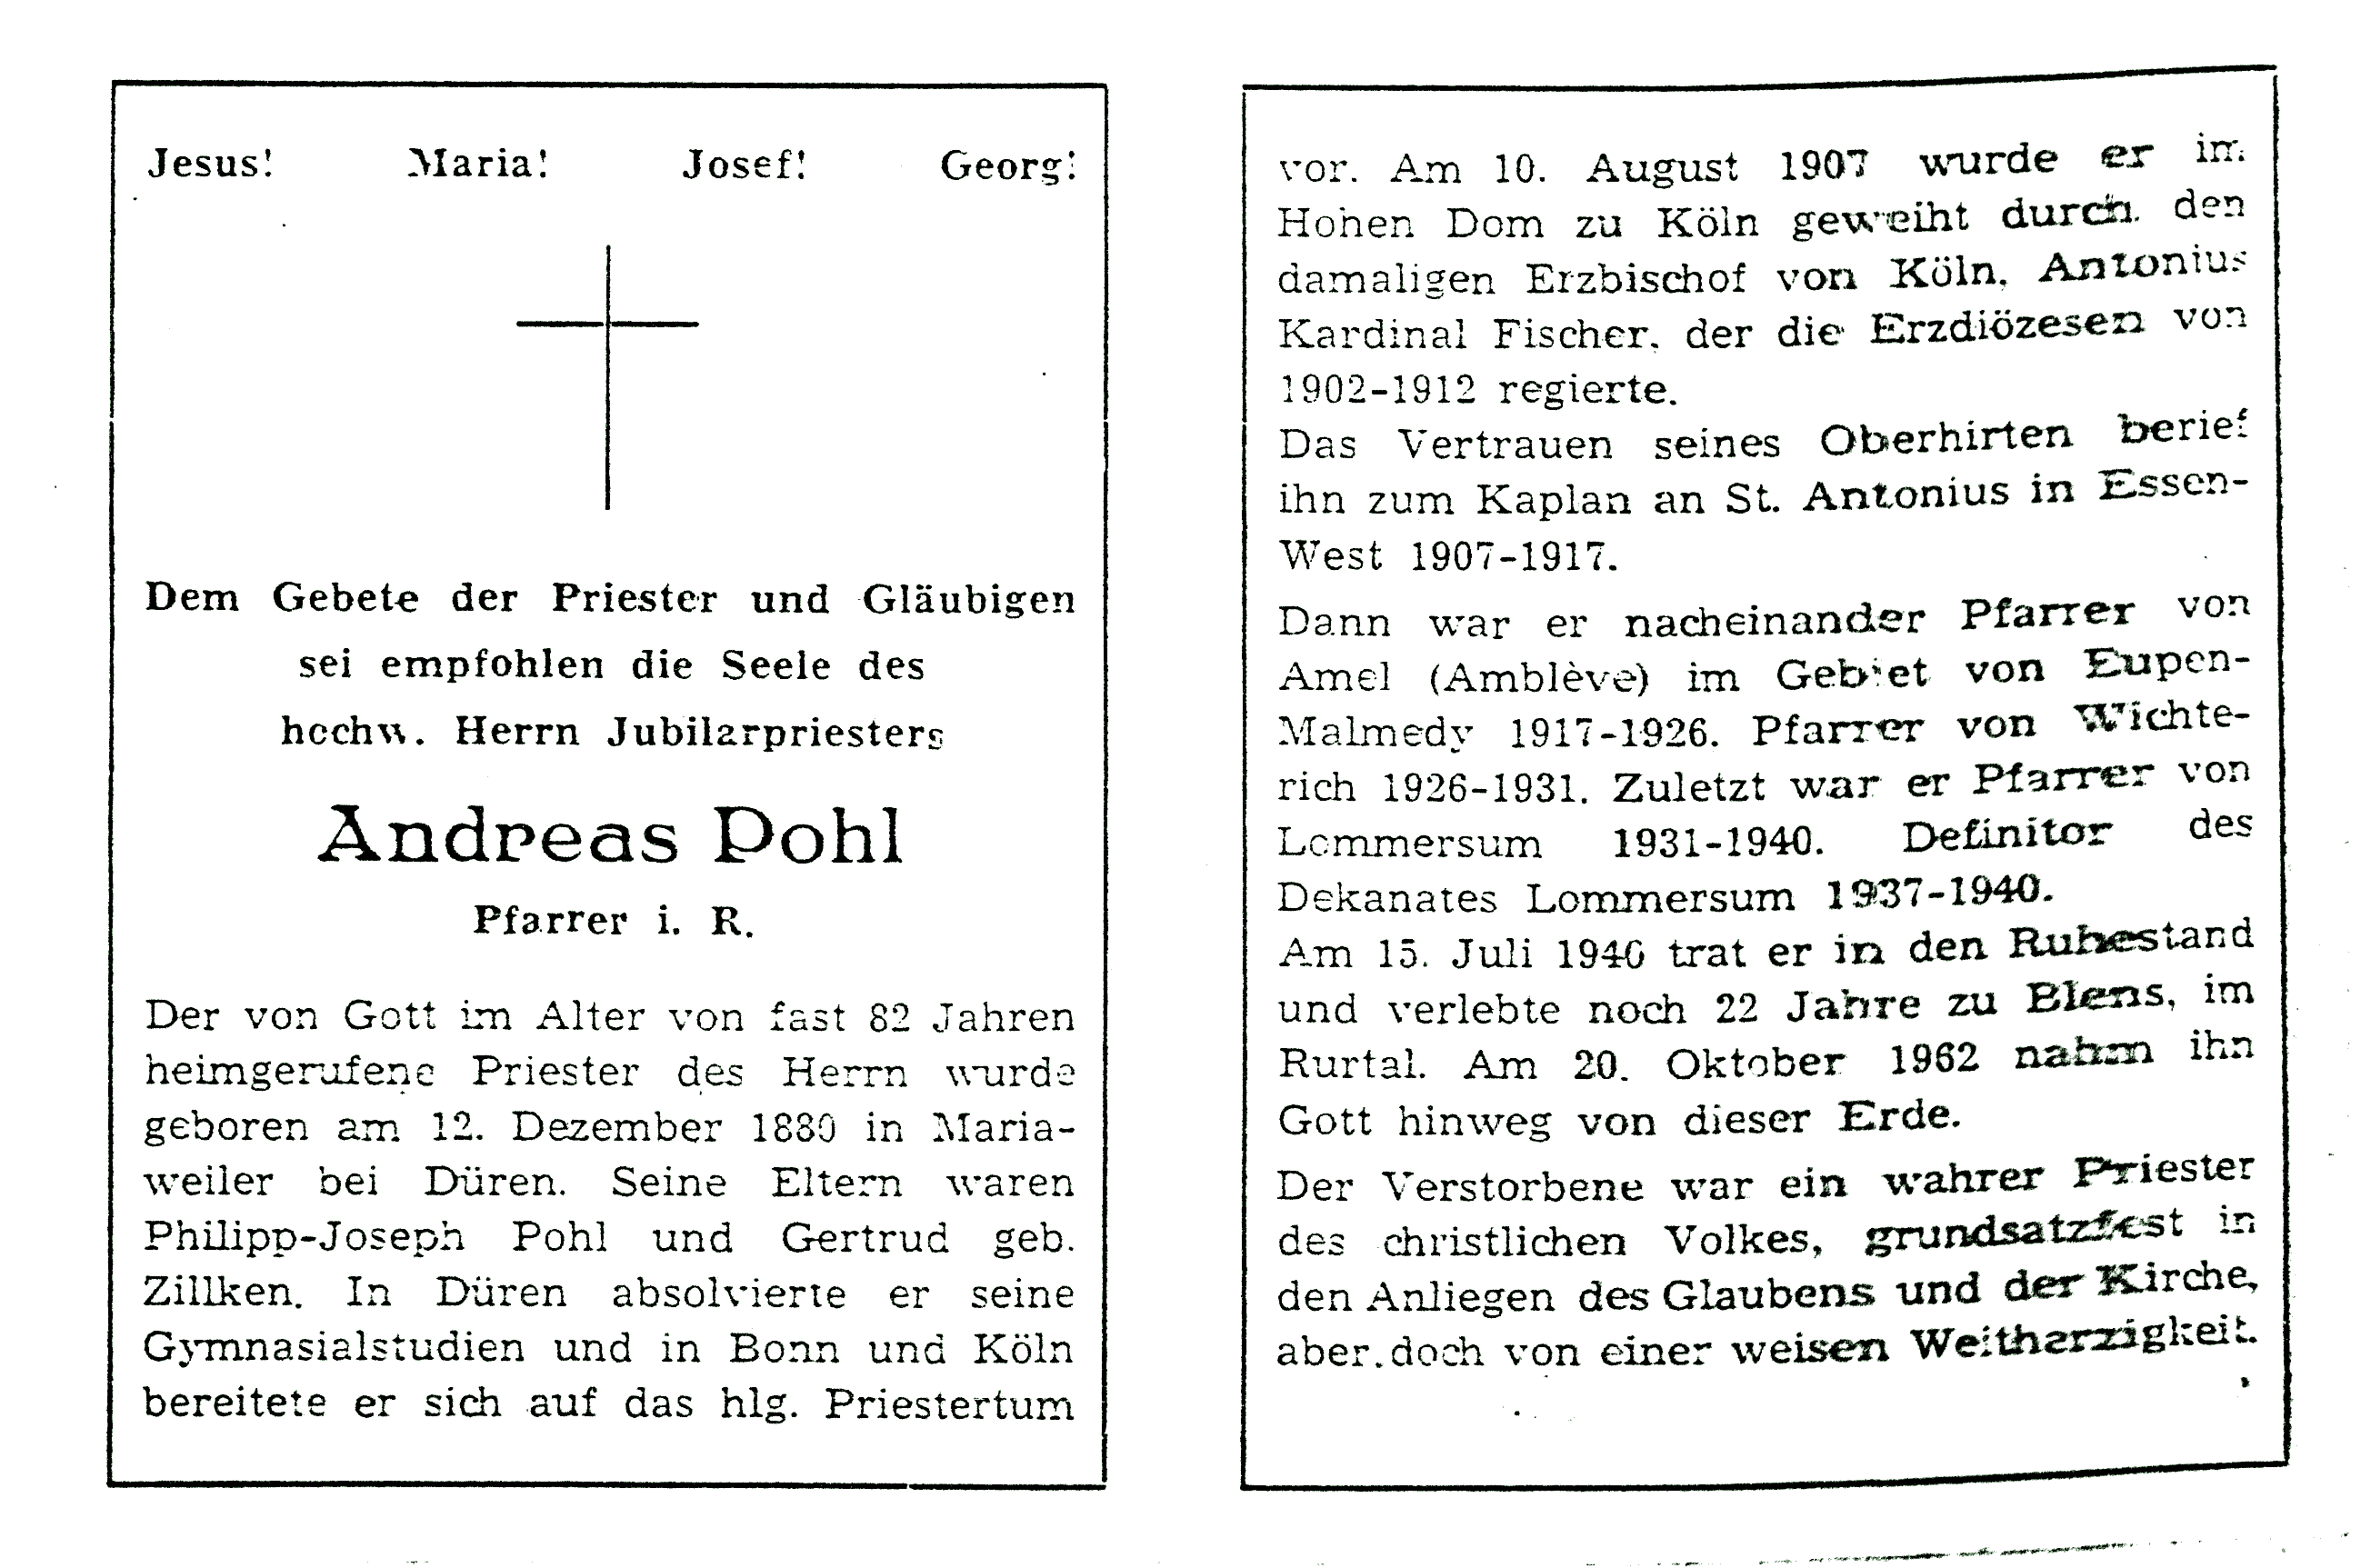 Jesus! Maria! Josef! Georg!
Dem Gebete der Priester und Gläubigen
sei empfohlen die Seele des
hochw. Herrn Jubilarpriesters
Andreas Pohl
Pfarrer i. R.
Der von Gott im Alter von fast 82 Jahren
heimgerufene Priester des Herrn wurde
geboren am 12. Dezember 1880 in Maria-
weiler bei Düren. Seine Eltern waren
Philipp-Joseph Pohl und Gertrud geb.
Zillken. In Düren absolvierte er seine
Gymnasialstudien und in Bonn und Köln
bereitete er sich auf das hlg. Priestertum
vor. Am 10. August 1907 wurde er im
Hohen Dom zu Köln geweiht durch den
damaligen Erzbischof von Köln, Antonius
Kardinal Fischer, der die Erzdiözesen von
1902-1912 regierte.
Das Vertrauen seines Oberhirten berief
ihn zum Kaplan an St. Antonius in Essen-
West 1907-1917.
Dann war er nacheinander Pfarrer von
Amel (Amblève) im Gebiet von Eupen-
Malmedy 1917-1926. Pfarrer von Wichte-
rich 1926-1931. Zuletzt war er Pfarrer von
Lommersum 1931-1940. Definitor des
Dekanates Lommersum 1937-1940.
Am 15. Juli 1940 trat er in den Ruhestand
und verlebte noch 22 Jahre zu Blens, im
Rurtal. Am 20. Oktober 1962 nahm ihn
Gott hinweg von dieser Erde.
Der Verstorbene war ein wahrer Priester
des christlichen Volkes, grundsatzfest in
den Anliegen des Glaubens und der Kirche,
aber doch von einer weisen Weitherzigkeit.